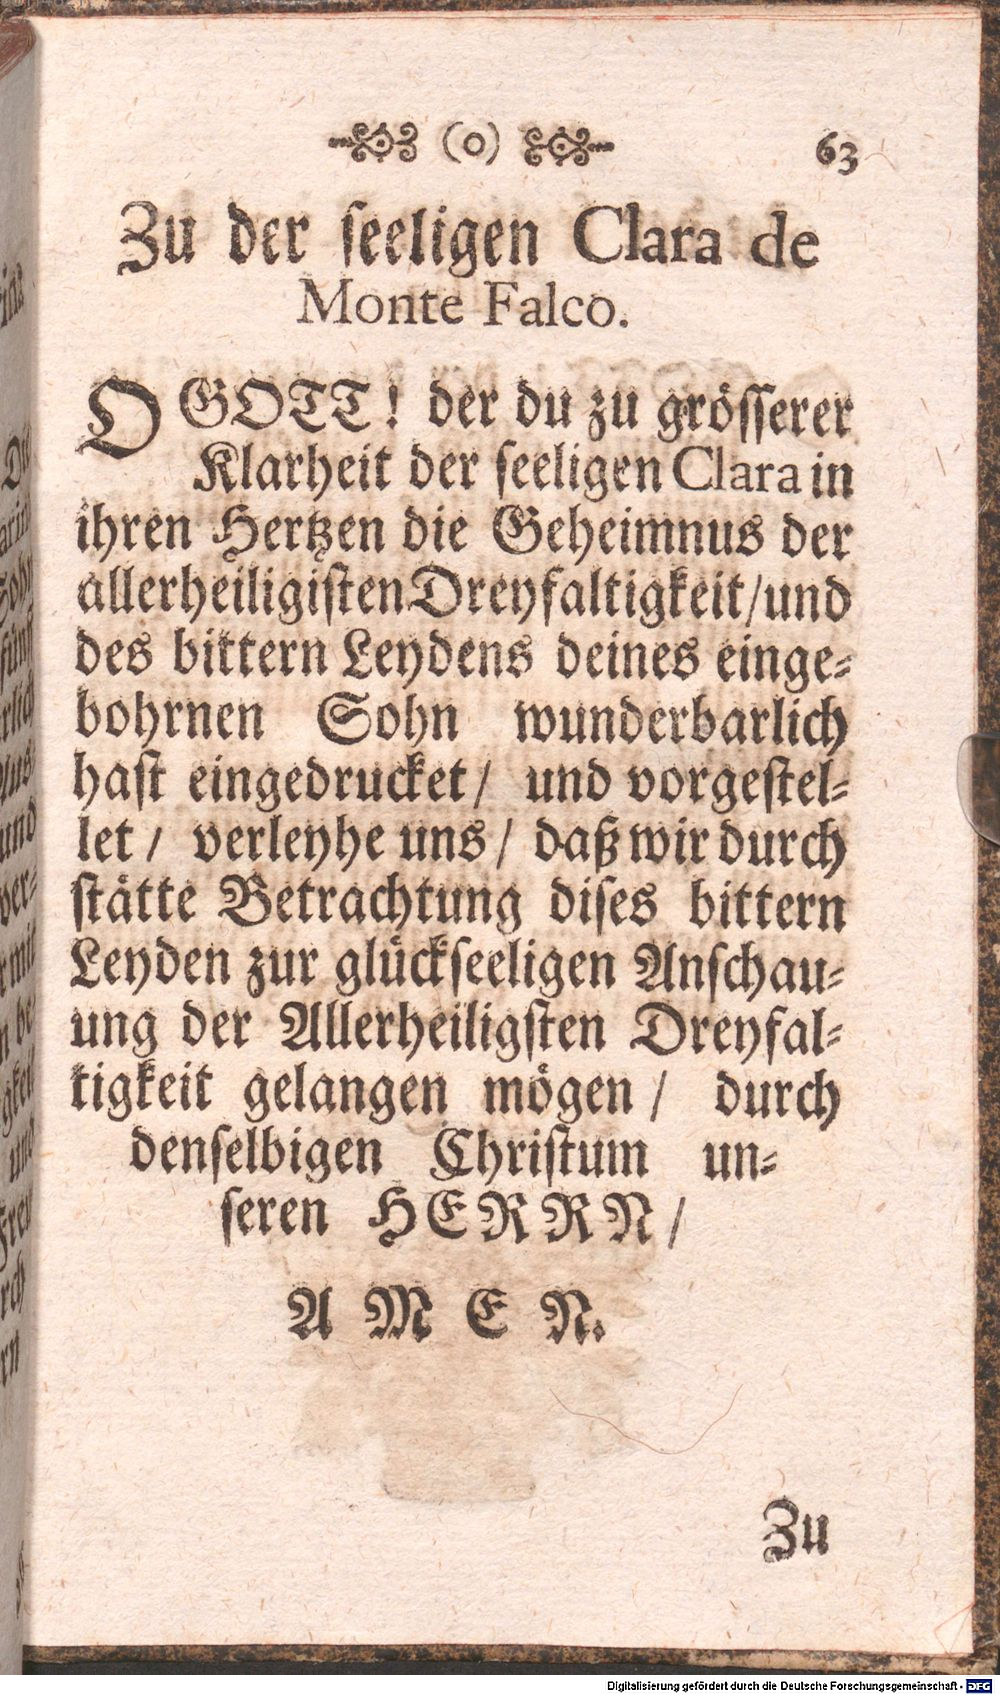 (o) 63
Zu der seeligen Clara de
Monte Falco.
O GOTT! der du zu grösserer
Klarheit der seeligen Clara in
ihren Hertzen die Geheimnus der
allerheiligisten Dreyfaltigkeit/und
des bittern Leydens deines einge-
bohrnen Sohn wunderbarlich
hast eingedrucket/ und vorgestel-
let/ verleyhe uns/ daß wir durch
stätte Betrachtung dises bittern
Leyden zur glückseeligen Anschau-
ung der Allerheiligsten Dreyfal-
tigkeit gelangen mögen/ durch
denselbigen Christum un-
seren HERRN/
AMEN.
Zu
Digitalisierung gefördert durch die Deutsche Forschungsgemeinschaft - DFG